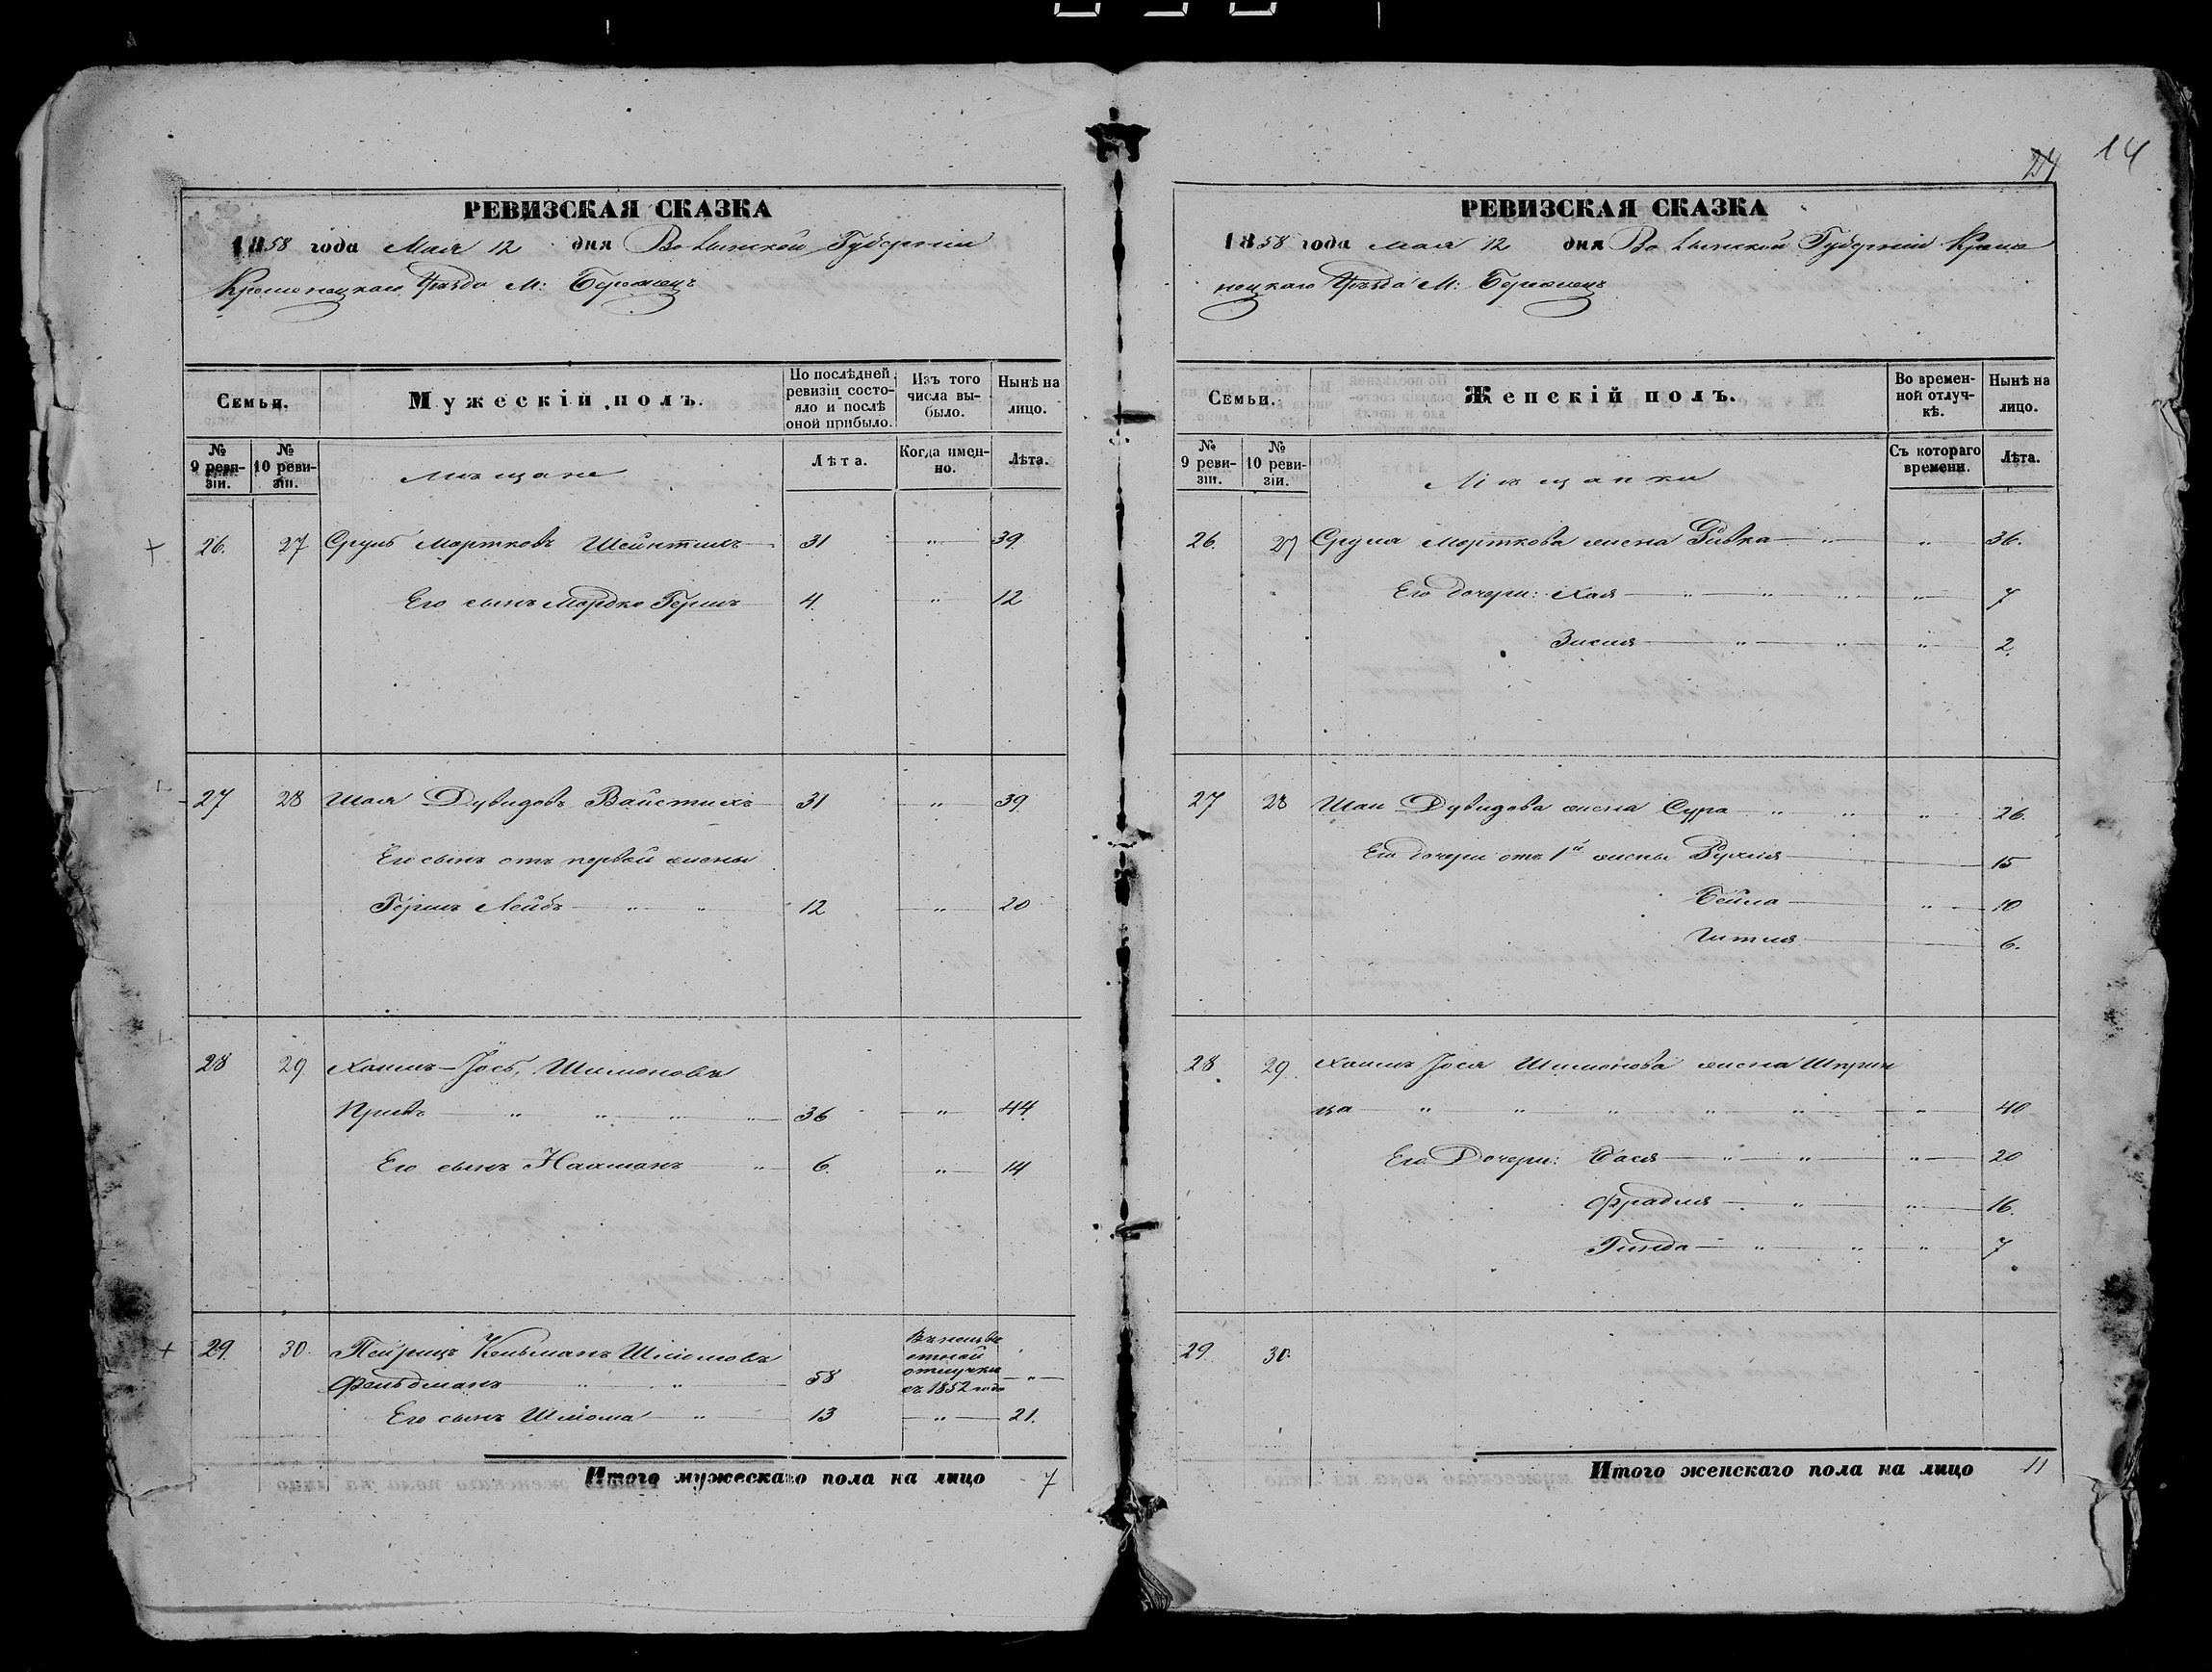 14
24
РЕВИЗСКАЯ СКАЗКА
1858 года Мая 12 дня Волынской Губернии
Кременецкаго Уѣзда М: Бережецъ
Семьи.
Мужескій полъ.
По послѣдней ревизіи состояло и послѣ оной прибыло.
Изъ того числа выбыло.
Нынѣ на лицо.
№ 9 ревизіи.
№ 10 ревизіи.
мѣщане
Лѣта.
Когда именно.
Лѣта.
26. 27 Сруль Мортковъ 31 " 39.
Его сынъ Мордко Гершъ 4. " 12
27 28 Шая Дувидовъ Вайстихъ 31 " 39.
Его сынъ отъ первой жены
Гершъ Лейбъ " " 12 " 20
28 29 Хаимъ-Йось, Шимоновъ
" " " " 36 " 44
Его сынъ Нахманъ " 6. " 14
29. 30. Кельманъ Шліомовъ
Фельдманъ " " 58 "
въ неизвѣ
стной
отлучкѣ
съ 1852 года
Его сынъ Шліома " 13 " 21.
Итого мужескаго пола на лицо 7
РЕВИЗСКАЯ СКАЗКА
1858 года мая 12 дня Волынской Губерніи Креме
нецкаго Уѣзда М: Бережецъ
Семьи.
Женскій полъ.
Во временной отлучкѣ.
Нынѣ на лицо.
№ 9 ревизіи.
№ 10 ревизіи.
Мѣщанки
Съ котораго времени.
Лѣта.
26. 27 Сруля Морткова жена Ривка " " 36.
Его дочери: Хая " " " " 7
Зисля " " " 2.
27 28 Шаи Дувидова жена Сура " " " 26.
Его дочери отъ 1й жены Рухля 15
Бейла " 10
Гитля 6.
28 29. Хаимъ Йося Шимонова жена Шприн
ца " " " " " " 40
Его Дочери: Бася " " " 20
Фрадля " " 16.
Гинда " " " 7
29 30.
Итого женскаго пола на лицо 11